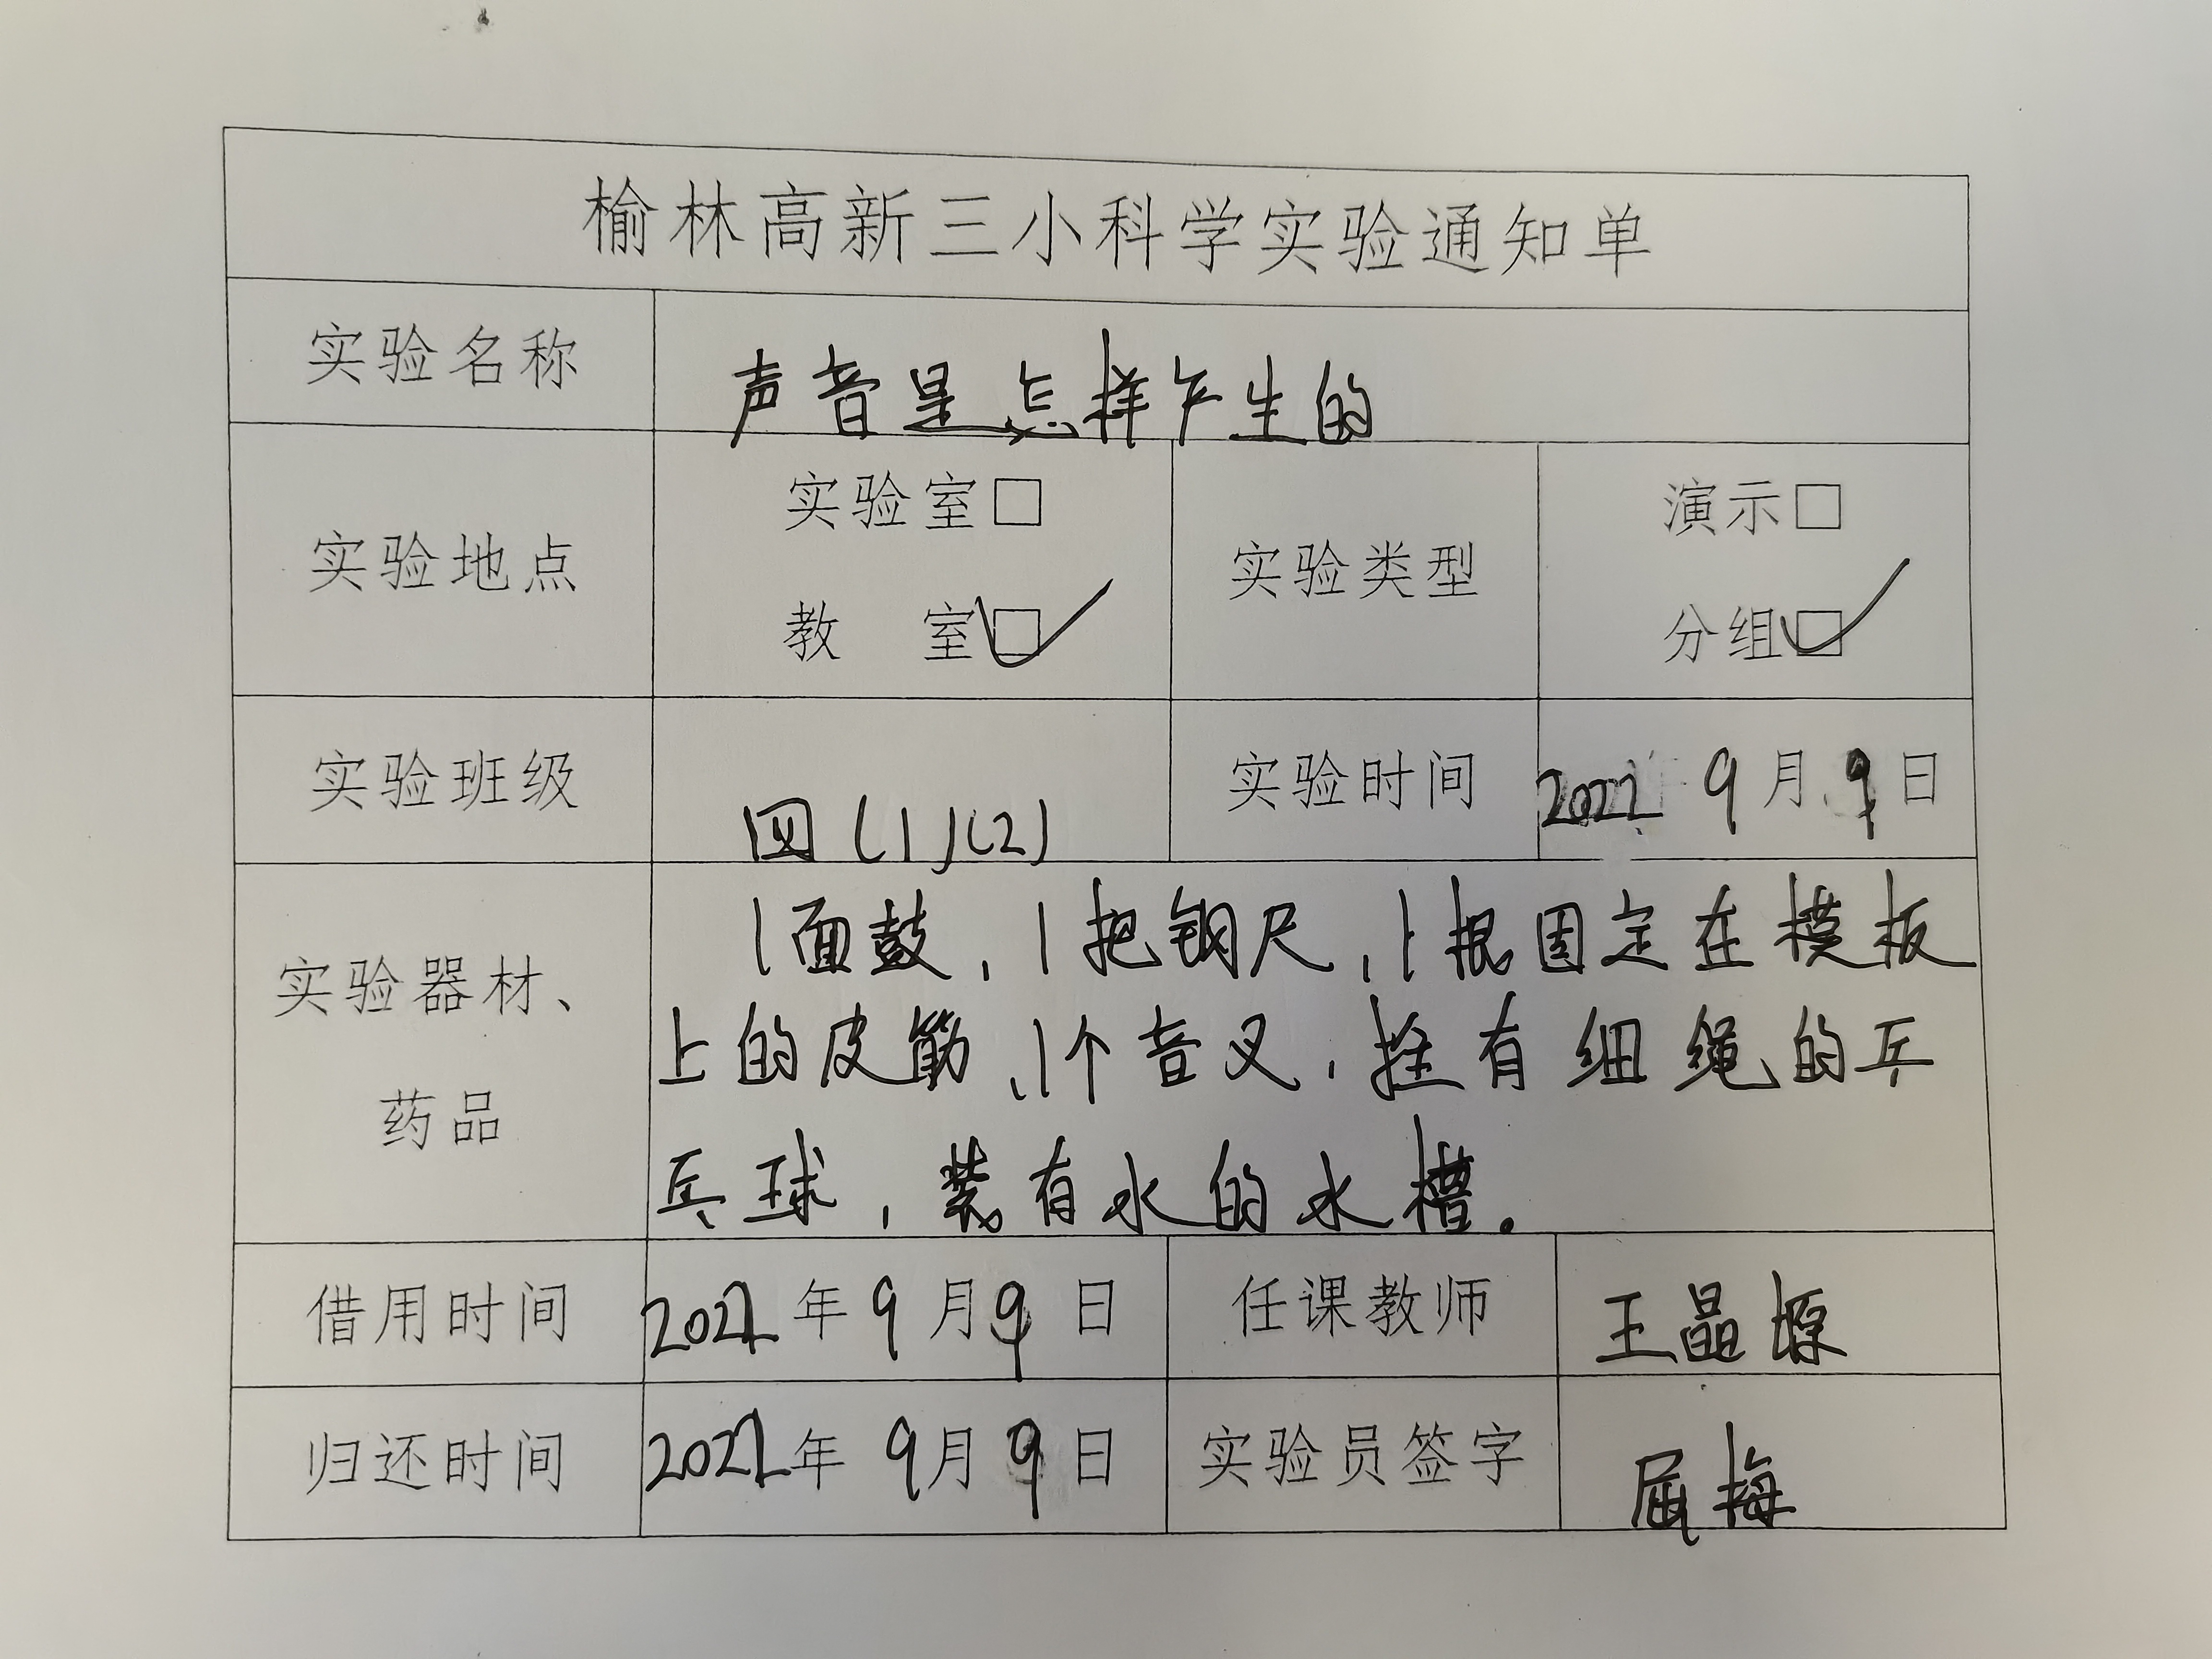 榆林高新三小科学实验通知单
实验名称 声音是怎样产生的
实验地点 实验室□ 实验类型 演示□
教 室☑ 分组☑
实验班级 四(1)(2) 实验时间 2022年9月9日
实验器材、药品
1面鼓,1把钢尺,1根固定在模板
上的皮筋、1个音叉,拴有细绳的乒
乓球,装有水的水槽。
借用时间 2022年9月9日 任课教师 王晶塬
归还时间 2022年9月9日 实验员签字 屈梅